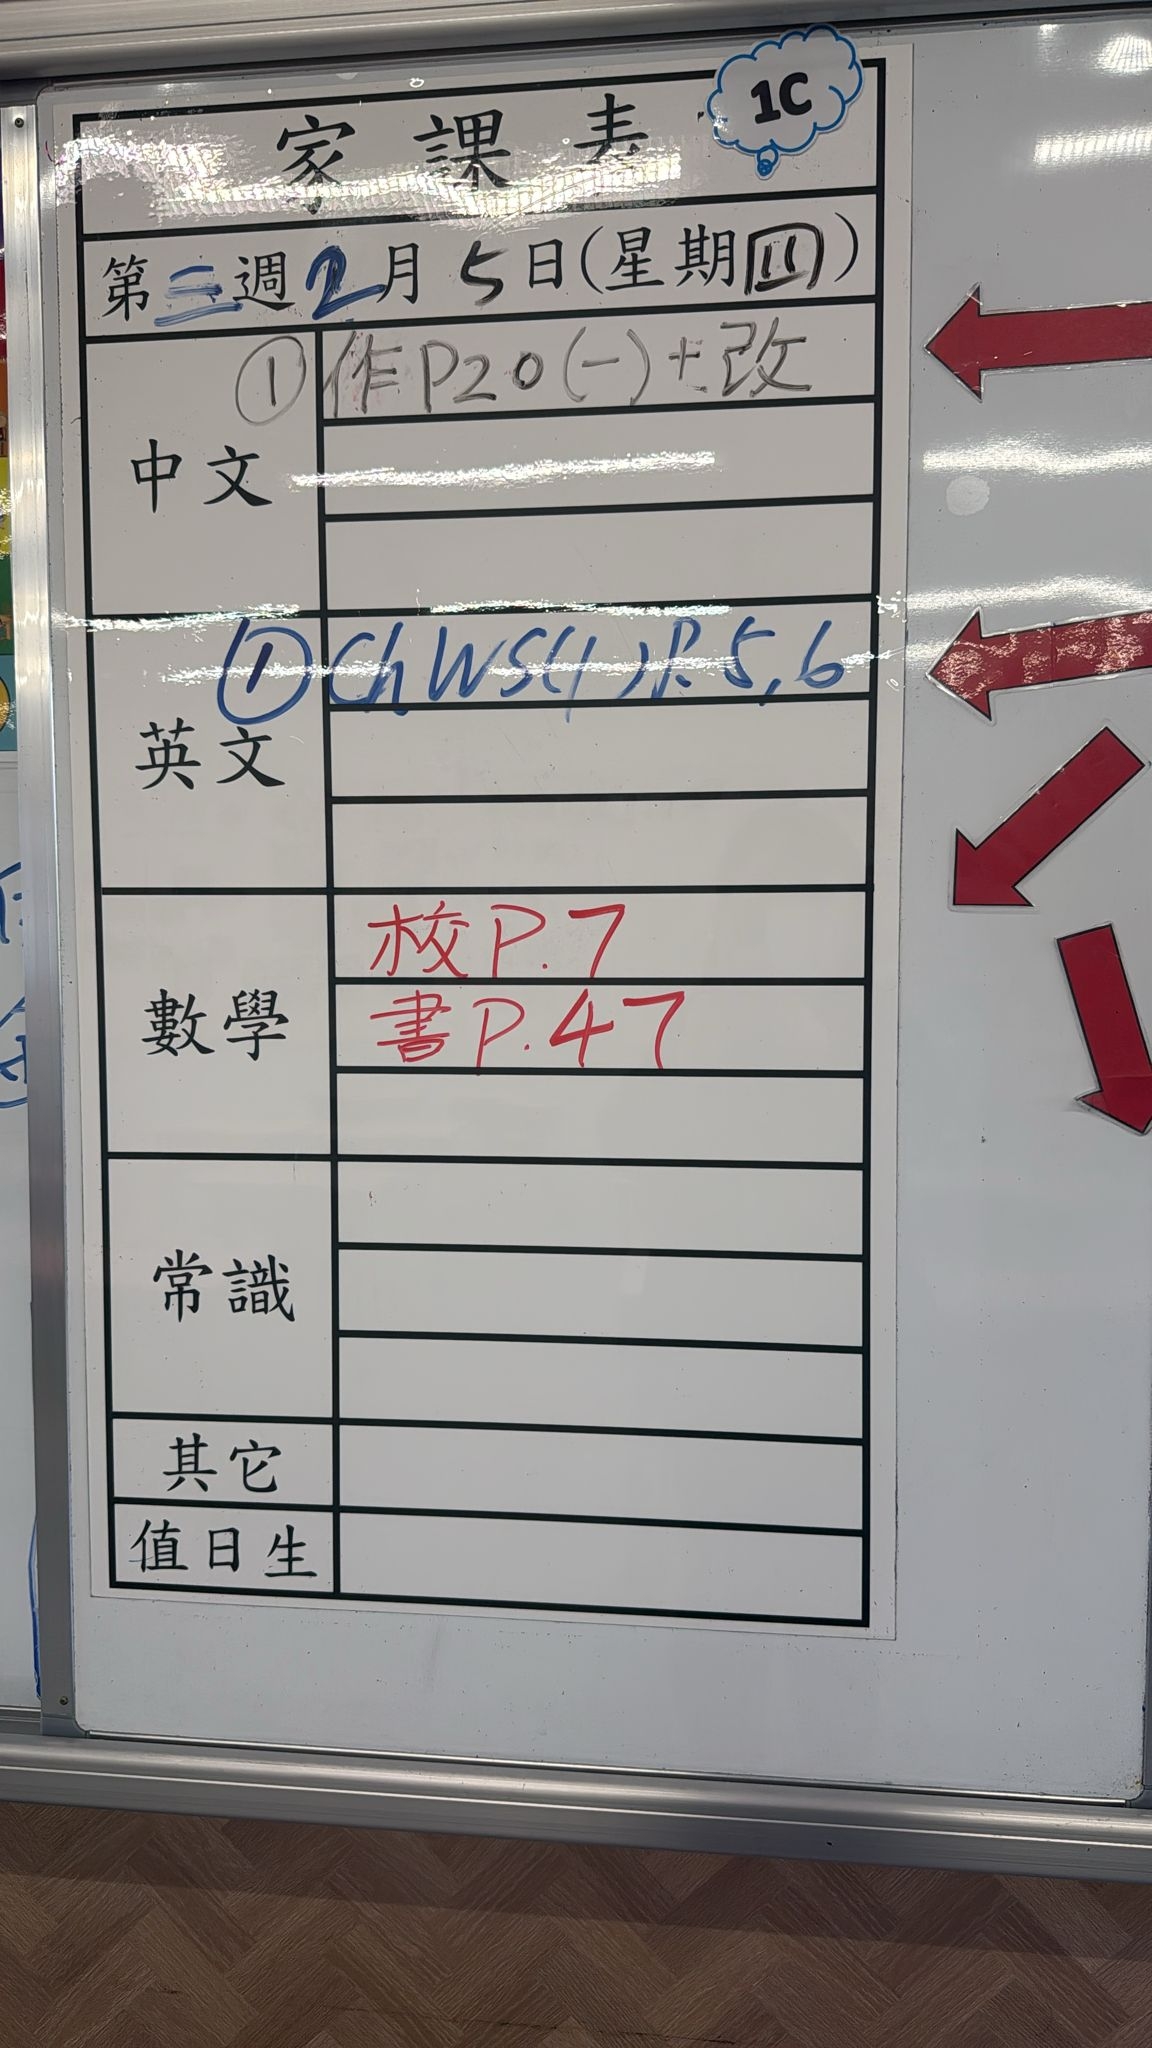 家課表 1C
第三週2月5日(星期四)
中文 ① 作P20(一)+改
英文 ① Ch WS(1)P.5,6
數學 校P.7
書P.47
常識
其它
值日生